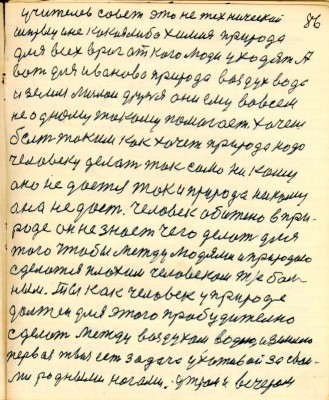 86
учителев совет это не технической
штуки и не какаялиба химия природа
для всех враг от кого люди уходят. А
вот для иванова природа воздух вода
и земля милои друзья они ему во всем
не одному такому помогает. хочеш
быть таким как хочет природа надо
человеку делать так само ни кому
оно не дается так и природа никому
она не дает. человек обижено в при-
роде он не знает чего делать для
того чтобы между людями и природою
сделатся плохим человеком т/е боль-
ным. Ты как человек у природе
должен для этого пробудително
сделать между воздухом водою, и землею
первая твая ест задача ухаживай за свои-
ми родными ногами. утром и вечером